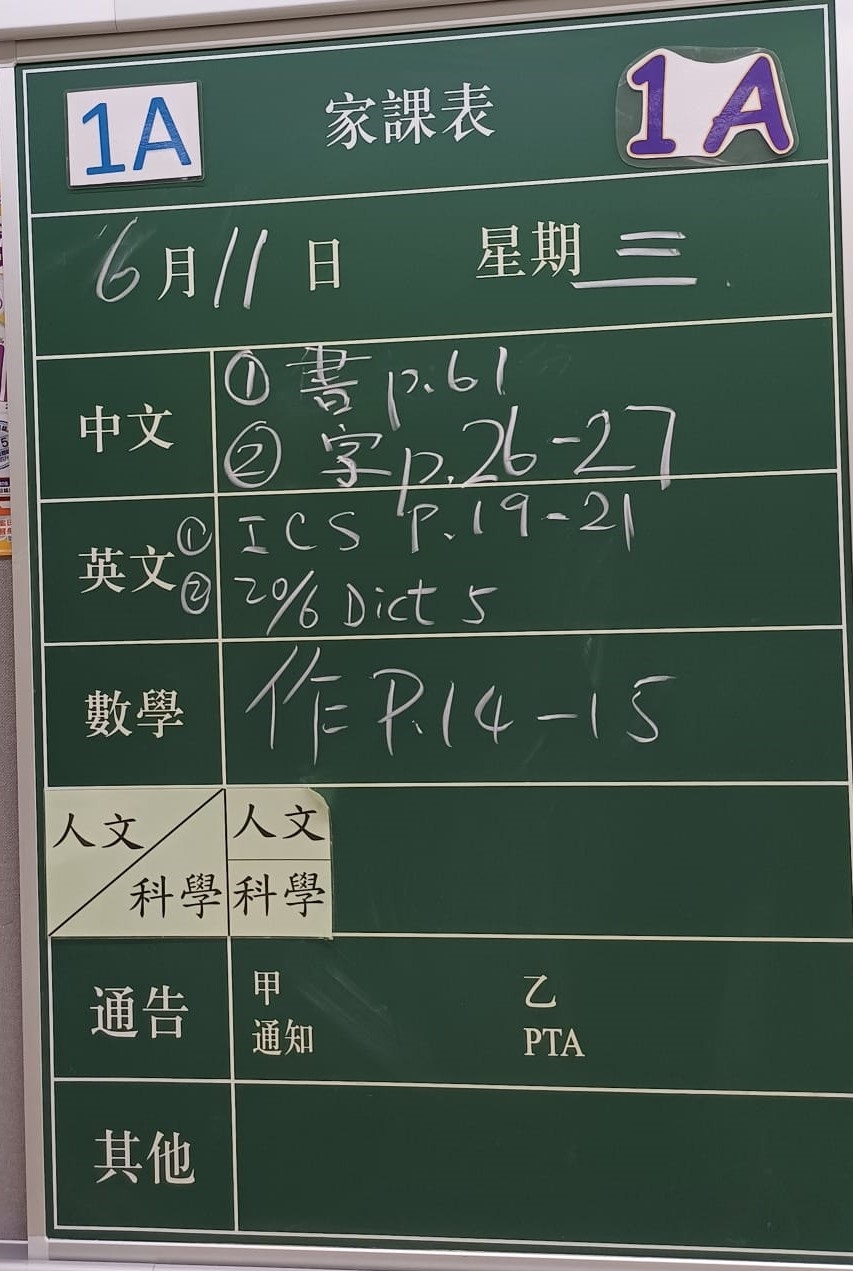 1A 家課表 1A
6月11日 星期三
中文 ① 書 p.61
② 字 p.26-27
英文 ① ICS P.19-21
② 20/6 Dict 5
數學 作 P.14-15
人文 人文
科學 科學
通告 甲 乙
通知 PTA
其他